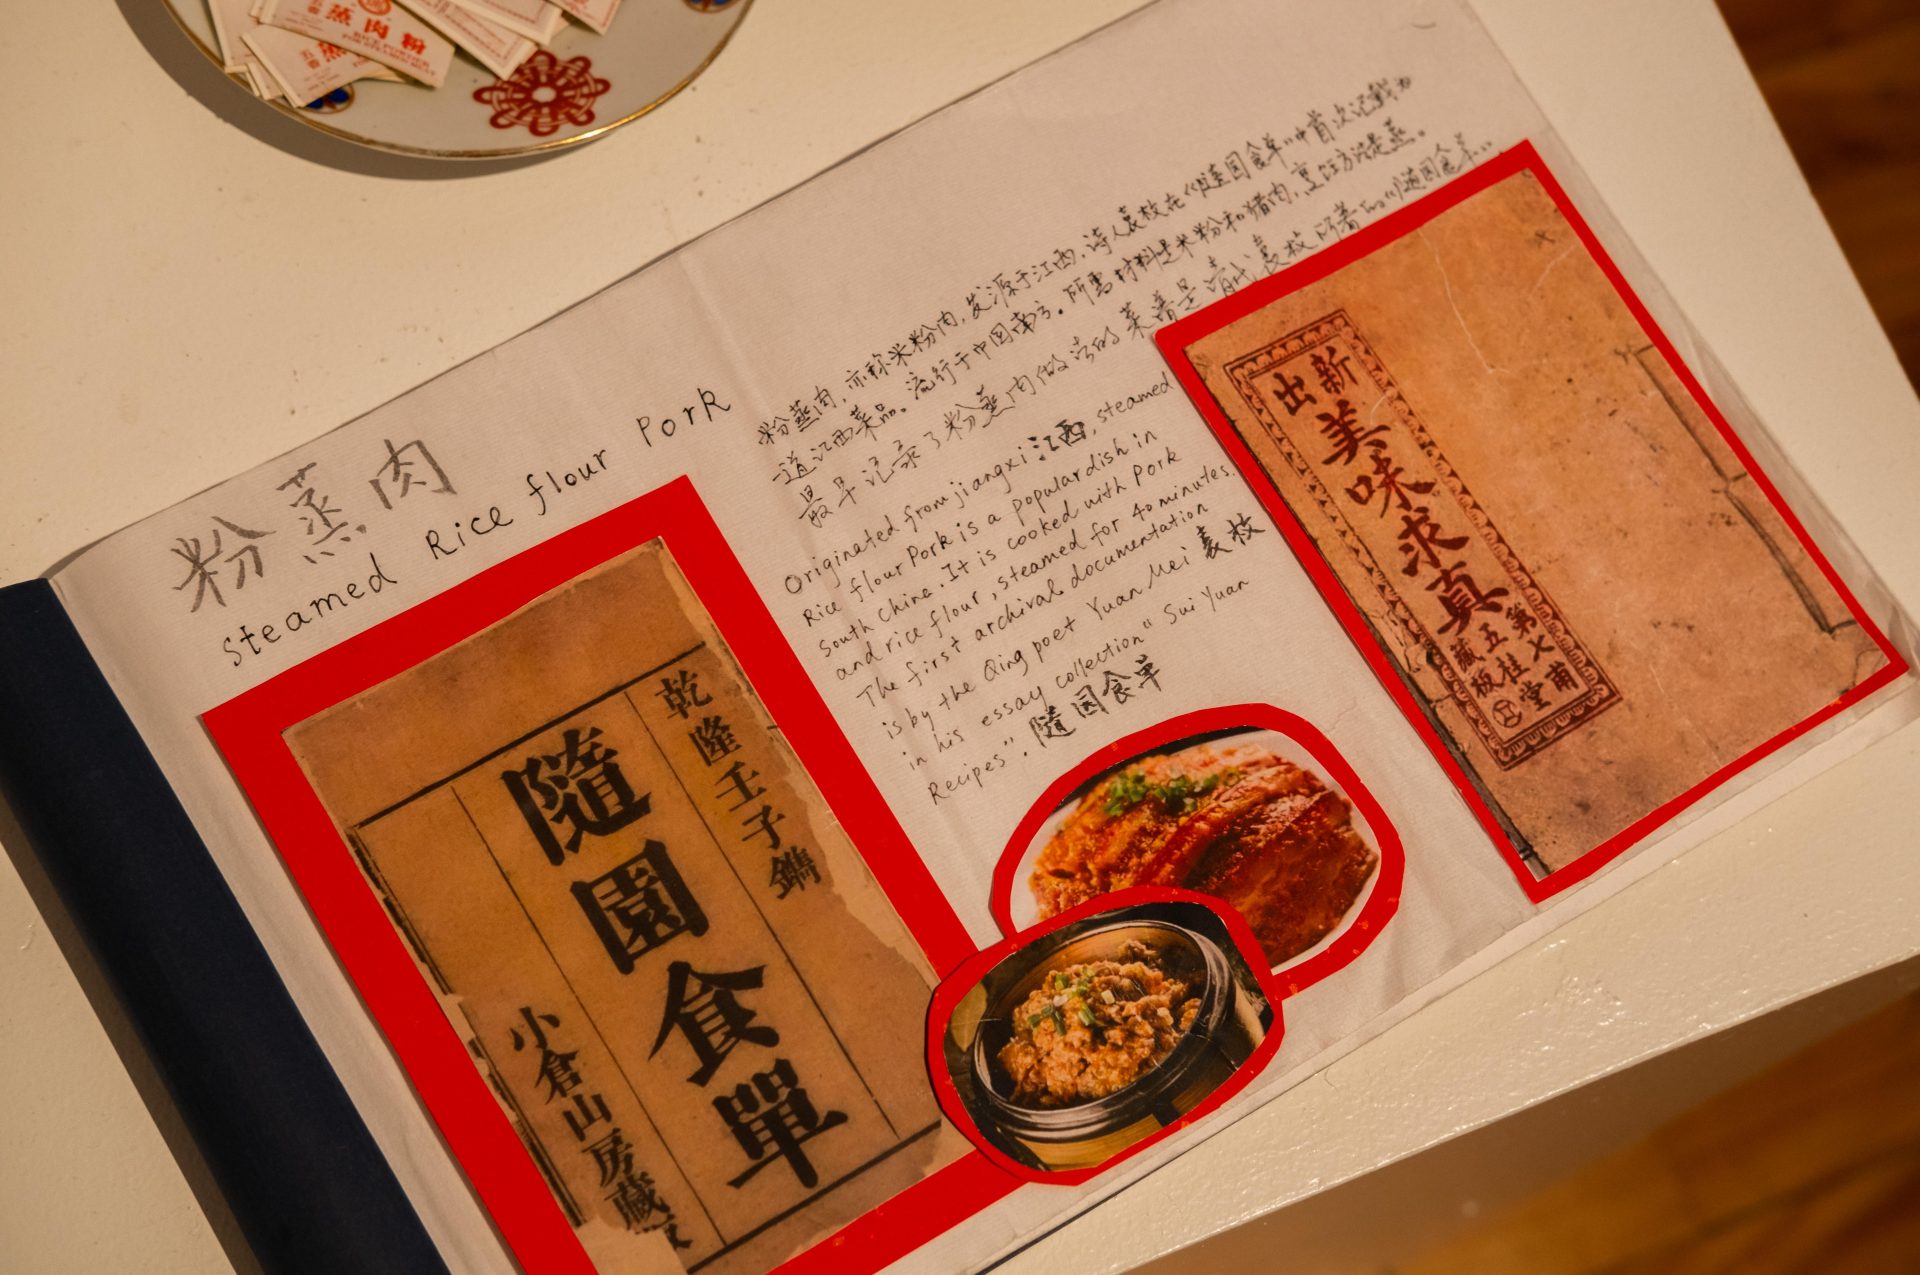 蒸肉粉
RICE POWDER
FOR STEAMED MEAT
五香
粉蒸肉
Steamed Rice flour Pork
粉蒸肉,亦称米粉肉,发源于江西,诗人袁枚在《随园食单》中首次记载为
一道江西菜品。流行于中国南方。所需材料是米粉和猪肉,烹饪方法是蒸。
最早记录了粉蒸肉做法的菜谱是清代袁枚所著的《随园食单》。
Originated from jiangxi 江西, steamed
Rice flour Pork is a popular dish in
South China. It is cooked with Pork
and rice flour, steamed for 40 minutes.
The first archival documentation
is by the Qing poet Yuan Mei 袁枚
in his essay collection "Sui Yuan
Recipes". 隨园食单
乾隆壬子鐫
隨園食單
小倉山房藏
新出
美味求真
第七甫
五桂堂
藏板